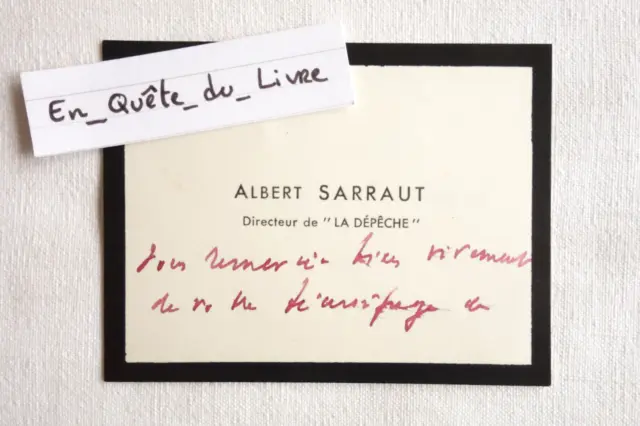 En_Quête_du_Livre
ALBERT SARRAUT
Directeur de "LA DÉPÊCHE"
Vous remercie bien vivement
de votre témoignage de